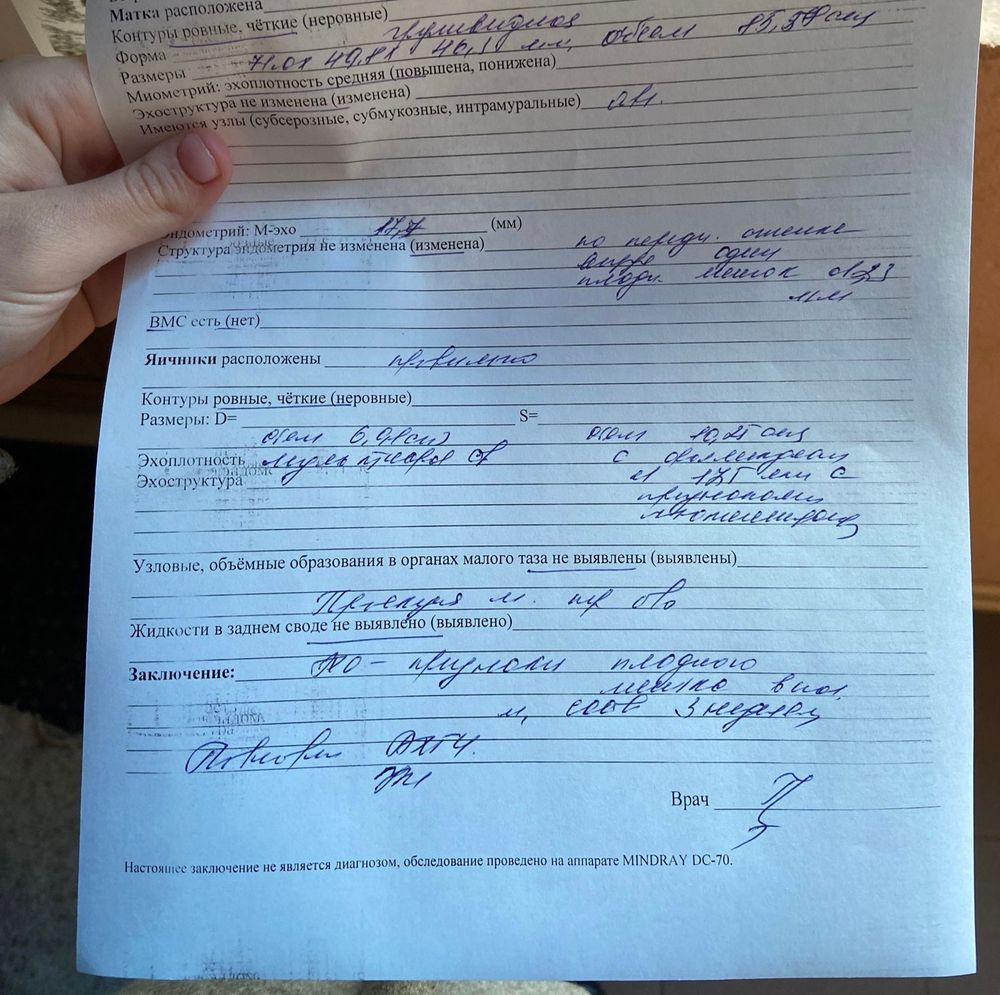 Матка расположена
Контуры ровные, чёткие (неровные)
Форма грушевидная
Размеры 71.0х 49,8х 46,1 мм, объем 85,
Миометрий: эхоплотность средняя (повышена, понижена)
Эхоструктура не изменена (изменена)
Имеются узлы (субсерозные, субмукозные, интрамуральные)
Эндометрий: М-эхо 17,7 (мм)
Структура эндометрия не изменена (изменена) по передн. стенке
один
плодн. мешок
мм
ВМС есть (нет)
Яичники расположены правильно
Контуры ровные, чёткие (неровные)
Размеры: D= S=
объем 6, см3 объем 10,25 см3
Эхоплотность с
Эхоструктура мм с
признаками
Узловые, объёмные образования в органах малого таза не выявлены (выявлены)
Проекция м.
Жидкости в заднем своде не выявлено (выявлено)
Заключение: признаки плодного
мешка в пол.
м, соотв 3 неделям
ХГЧ.
Врач
Настоящее заключение не является диагнозом, обследование проведено на аппарате MINDRAY DC-70.